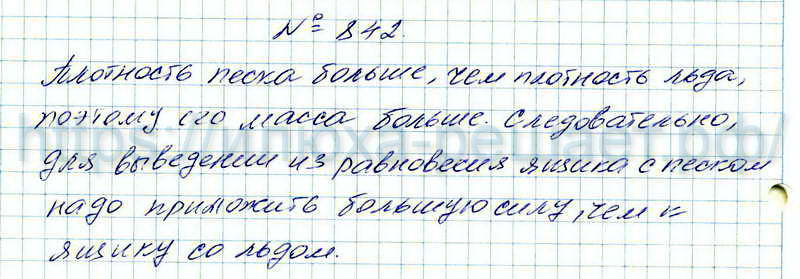 № 842.
Плотность песка больше, чем плотность льда,
поэтому его масса больше. Следовательно,
для выведении из равновесия ящика с песком
надо приложить большую силу, чем к
ящику со льдом.